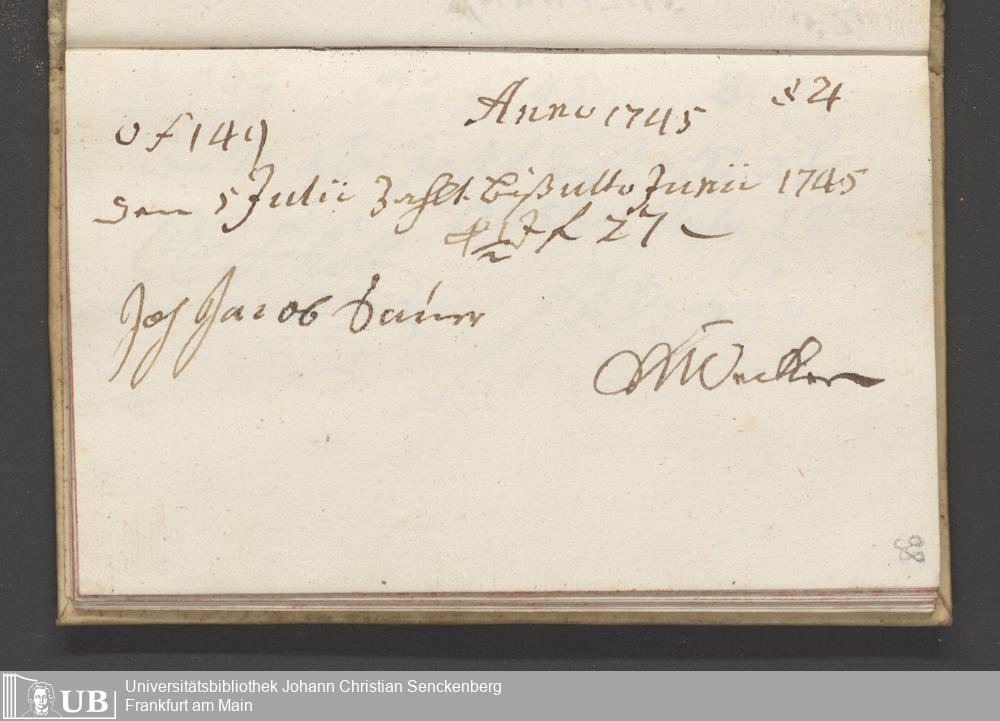 Anno 1745
of 149
den 5 Julii Zahlt biß ulto Junii 1745
f 27
Joh Jacob
88
UB
Universitätsbibliothek Johann Christian Senckenberg
Frankfurt am Main